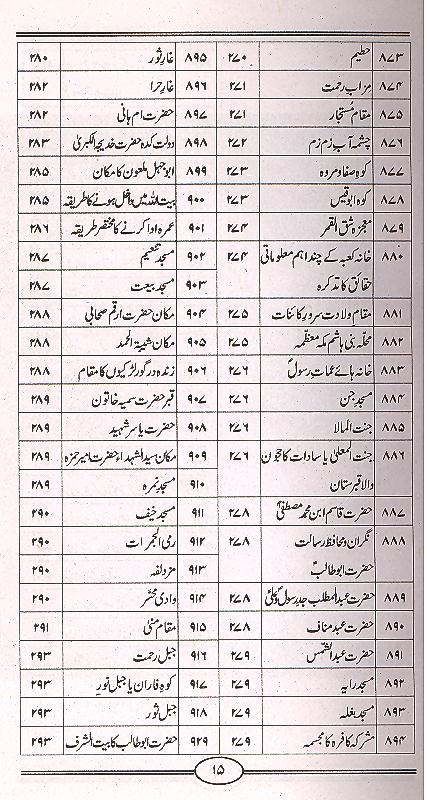 ۸۷۳ حطیم ۲۷۰
۸۷۴ میزاب رحمت ۲۷۱
۸۷۵ مقام مُستجار ۲۷۱
۸۷۶ چشمہ آب زم زم ۲۷۲
۸۷۷ کوہ صفا و مروہ ۲۷۳
۸۷۸ کوہ ابو قبیس ۲۷۳
۸۷۹ معجزہ شق القمر ۲۷۴
۸۸۰ خانہ کعبہ کے چند اہم معلوماتی ۲۷۴
حقائق کا تذکرہ
۸۸۱ مقام ولادت سرور کائنات ۲۷۵
۸۸۲ محلّہ بنی ہاشم مکہ معظّمہ ۲۷۵
۸۸۳ خانہ ہائے عمات رسولؐ ۲۷۶
۸۸۴ مسجد جن ۲۷۶
۸۸۵ جنت المالا ۲۷۶
۸۸۶ جنت المعلیٰ یا سادات کا حجون ۲۷۶
والا قبرستان
۸۸۷ حضرت قاسم ابن محمد مصطفیٰؐ ۲۷۸
۸۸۸ نگران و محافظ رسالت ۲۷۸
حضرت ابو طالبؑ
۸۸۹ حضرت عبد المطلب جد رسولؐ و علیؑ ۲۷۸
۸۹۰ حضرت عبد مناف ۲۷۸
۸۹۱ حضرت عبد الشمس ۲۷۹
۸۹۲ مسجد رایہ ۲۷۹
۸۹۳ مسجد بغلہ ۲۷۹
۸۹۴ مشرکہ کافرہ کا مجسمہ ۲۷۹
۸۹۵ غار ثور ۲۸۰
۸۹۶ غار حرا ۲۸۲
۸۹۷ حضرت ام ہانی ۲۸۲
۸۹۸ دولت کدہ حضرت خدیجۃ الکبریٰ ۲۸۳
۸۹۹ ابو جہل ملعون کا مکان ۲۸۵
۹۰۰ بیت اللہ میں داخل ہونے کا طریقہ ۲۸۵
۹۰۱ عمرہ ادا کرنے کا مختصر طریقہ ۲۸۶
۹۰۲ مسجد تنعیم ۲۸۷
۹۰۳ مسجد بیعت ۲۸۷
۹۰۴ مکان حضرت ارقم صحابی ۲۸۸
۹۰۵ مکان شعبۃ الحمد ۲۸۸
۹۰۶ زندہ در گور لڑکیوں کا مقام ۲۸۸
۹۰۷ قبر حضرت سمیہ خاتون ۲۸۹
۹۰۸ حضرت یاسر شہید ۲۸۹
۹۰۹ مکان سید الشہداء حضرت امیر حمزہ ۲۸۹
۹۱۰ مسجد نمرہ ۲۸۹
۹۱۱ مسجد خیف ۲۹۰
۹۱۲ رمی الجمرات ۲۹۰
۹۱۳ مزدلفہ ۲۹۰
۹۱۴ وادی محسّر ۲۹۰
۹۱۵ مقام منیٰ ۲۹۱
۹۱۶ جبل رحمت ۲۹۳
۹۱۷ کوہ فاران یا جبل نور ۲۹۳
۹۱۸ جبل ثور ۲۹۳
۹۲۹ حضرت ابو طالب کا بیت الشرف ۲۹۳
۱۵